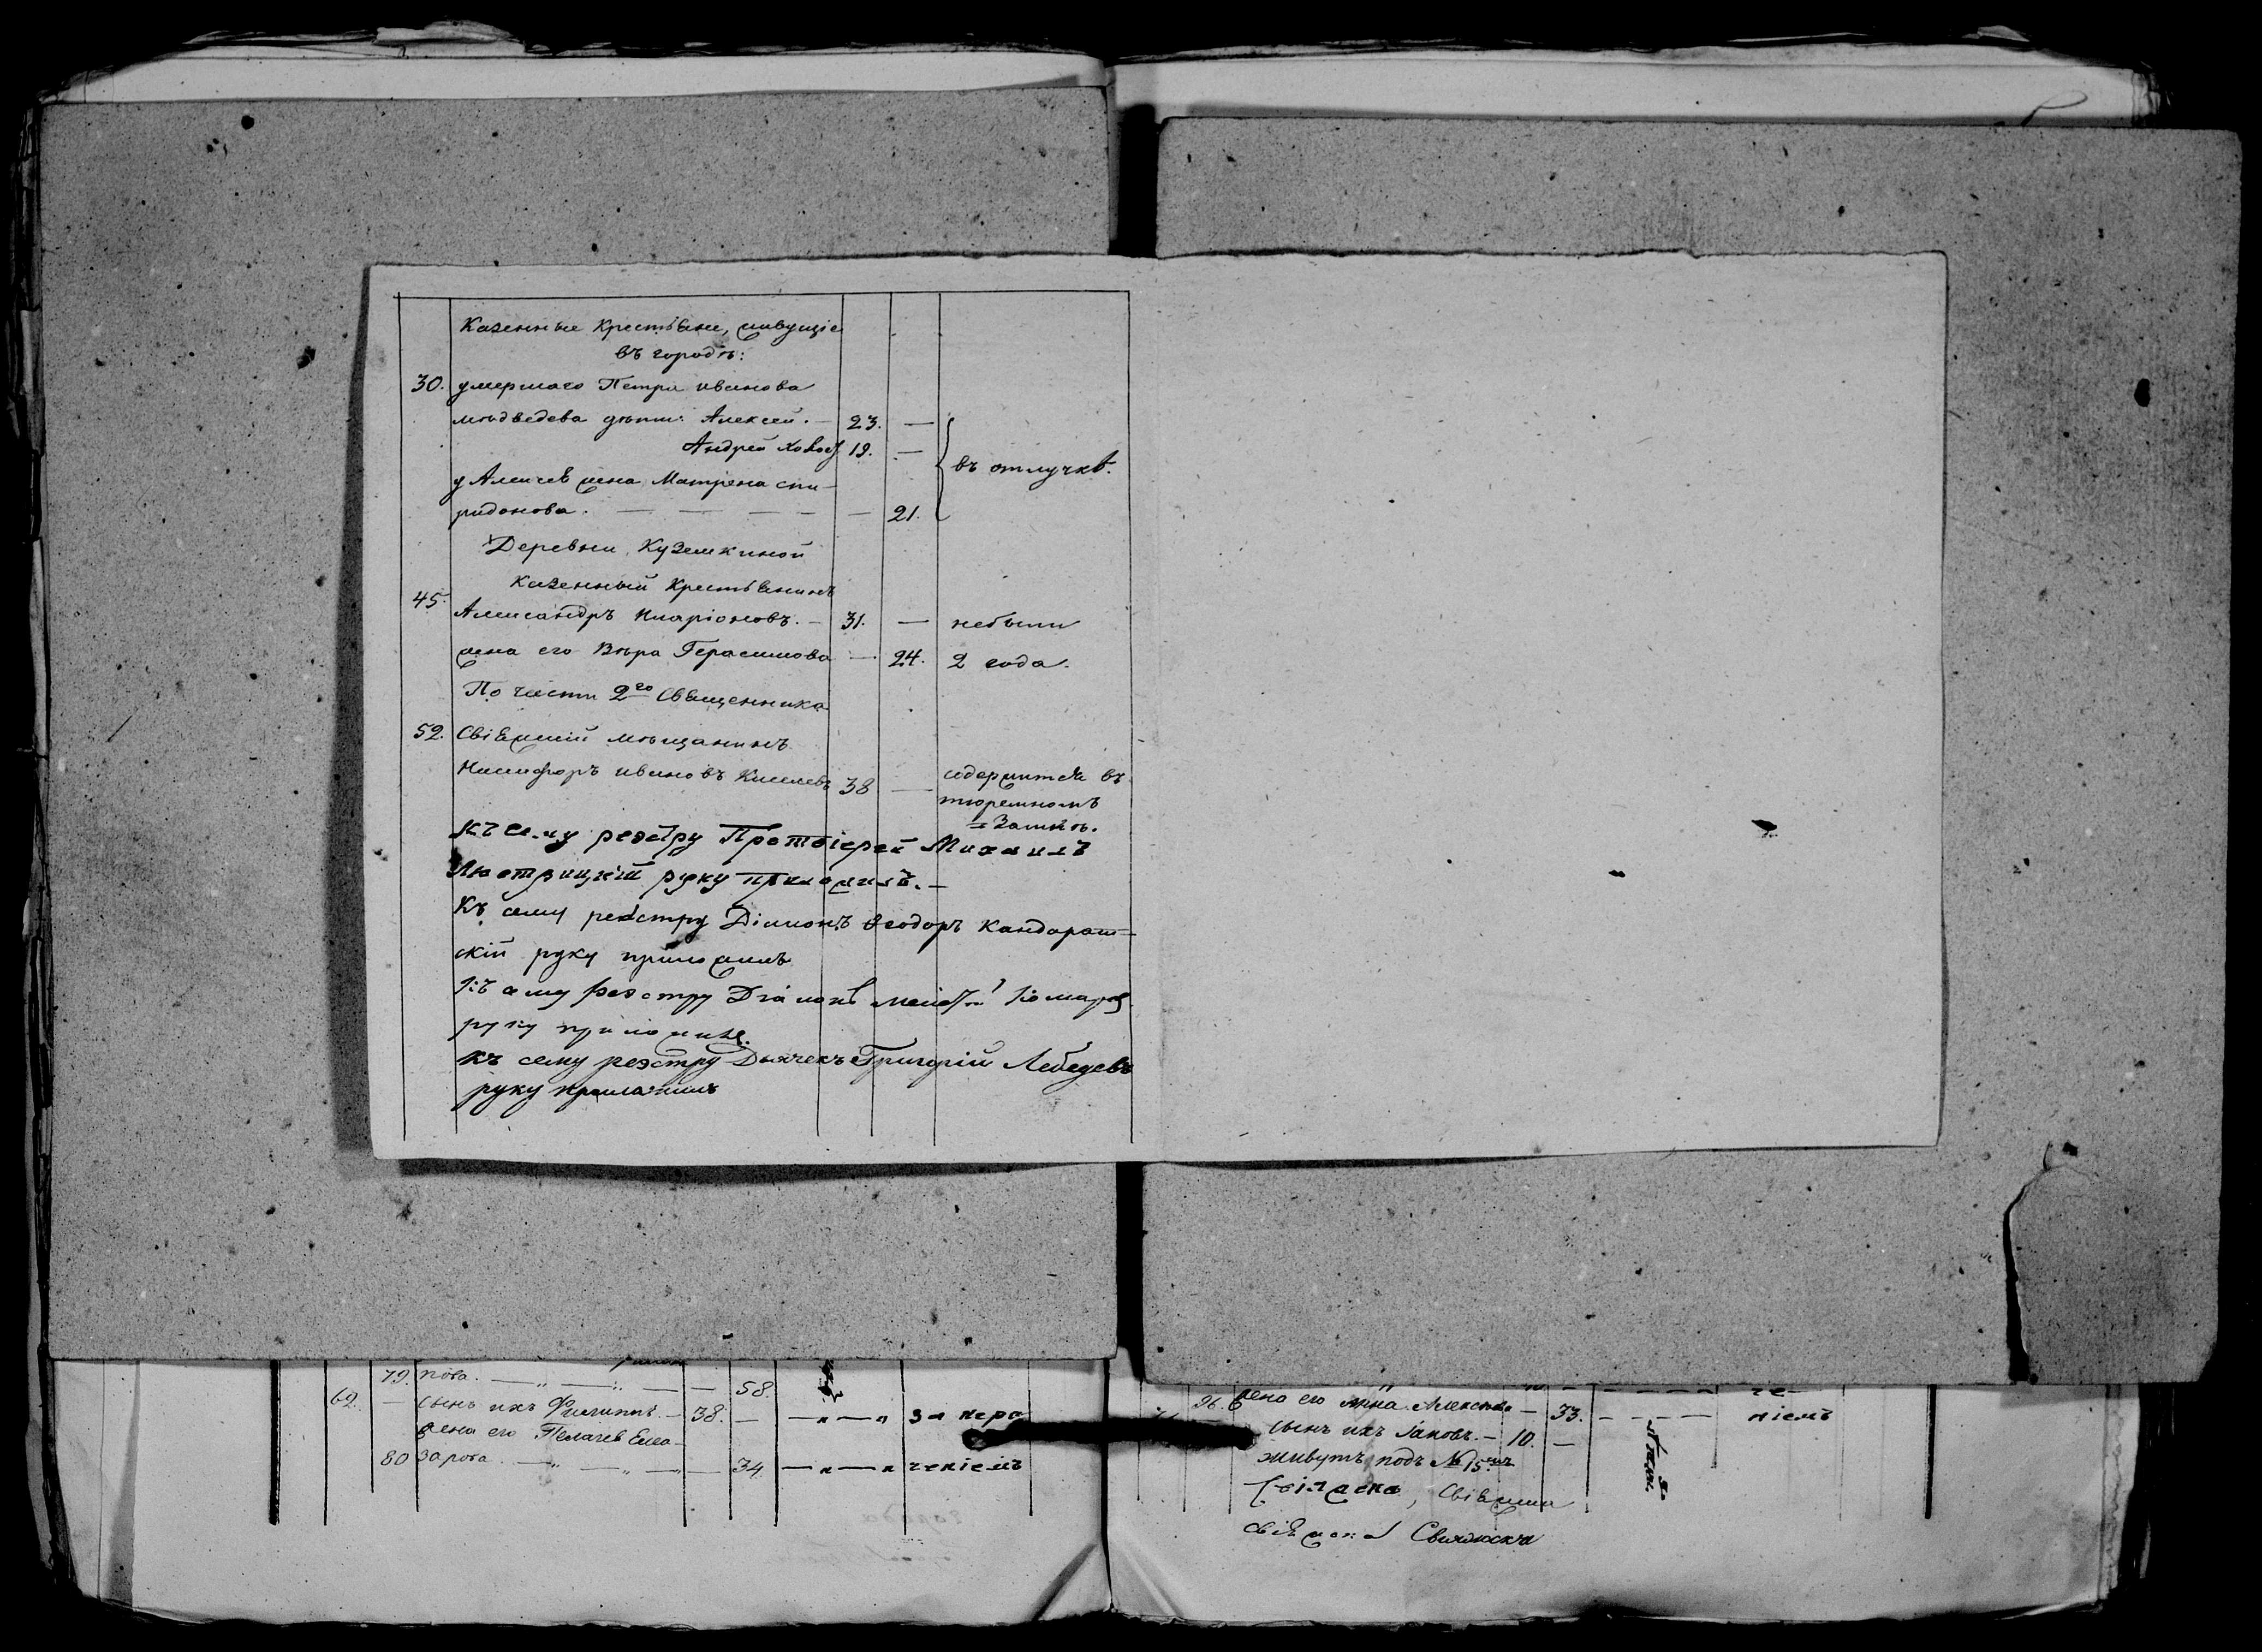 Казенные крестьяне, живущіе
въ городѣ:
30. умершаго Петра иванова
мѣдведева дѣти: Алексей. — 23. —
Андрей холост 19. —
въ отлучкѣ.
у Алексея жена Матрена спи-
ридонова. — — — — — 21.
Деревни Куземкиной
казенный крестьянинъ
45. Александръ Иларіоновъ. — 31. — небыли
жена его Вѣра Герасимова — 24. 2 года.
По части 2го Священника
52. Свіяжскій мѣщанинъ
Никифоръ ивановъ Киселевъ 38 — содержится въ
тюремномъ
Замкѣ.
Къ сему реэстру Протоіерей Михаилъ
руку приложилъ. —
Къ сему реэстру Діаконъ Ѳеодоръ Кандарат-
скій руку приложилъ
Къ сему реэстру Діаконъ Комаровъ
руку приложилъ.
Къ сему реэстру Дьячекъ Григорій Лебедевъ
руку приложилъ
79. нова. — „ — „ — — 58.
62. — сынъ ихъ Филиппъ. — 38. — — „ — „ за нера
жена его Пелагея Елеа-
80 зарова. — „ — „ — „ — 34. — „ — „ ченіемъ
96. жена его Анна Алексѣева — 33. — — — ніемъ
сынъ ихъ Іаковъ. — 10. —
живутъ подъ № 15мъ
Свіяжска, Свіяжска
Свіяжска Свияжска